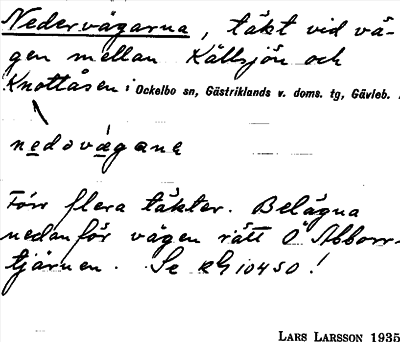 Nedervägarna, täkt vid vä-
gen mellan Källsjön och
Knottåsen i Ockelbo sn, Gästriklands v. doms. tg, Gävleb.
nedovägana
Förr flera täkter. Belägna
nedanför vägen rätt Ö Abborr-
tjärnen. Se RG 10450!
LARS LARSSON 1935